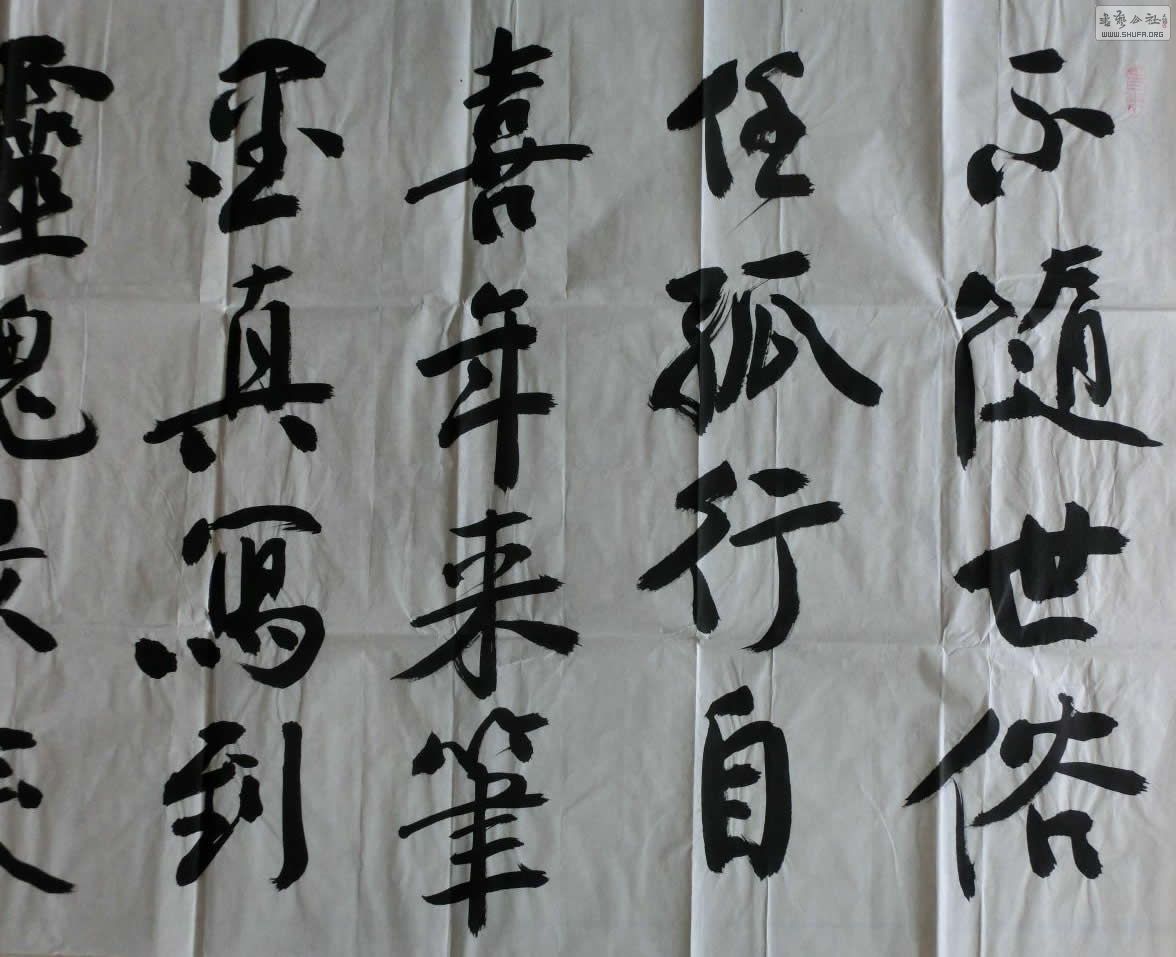 不随世俗
任孤行自
喜年来筆
墨真寫到
靈魂
書藝公社
WWW.SHUFA.ORG